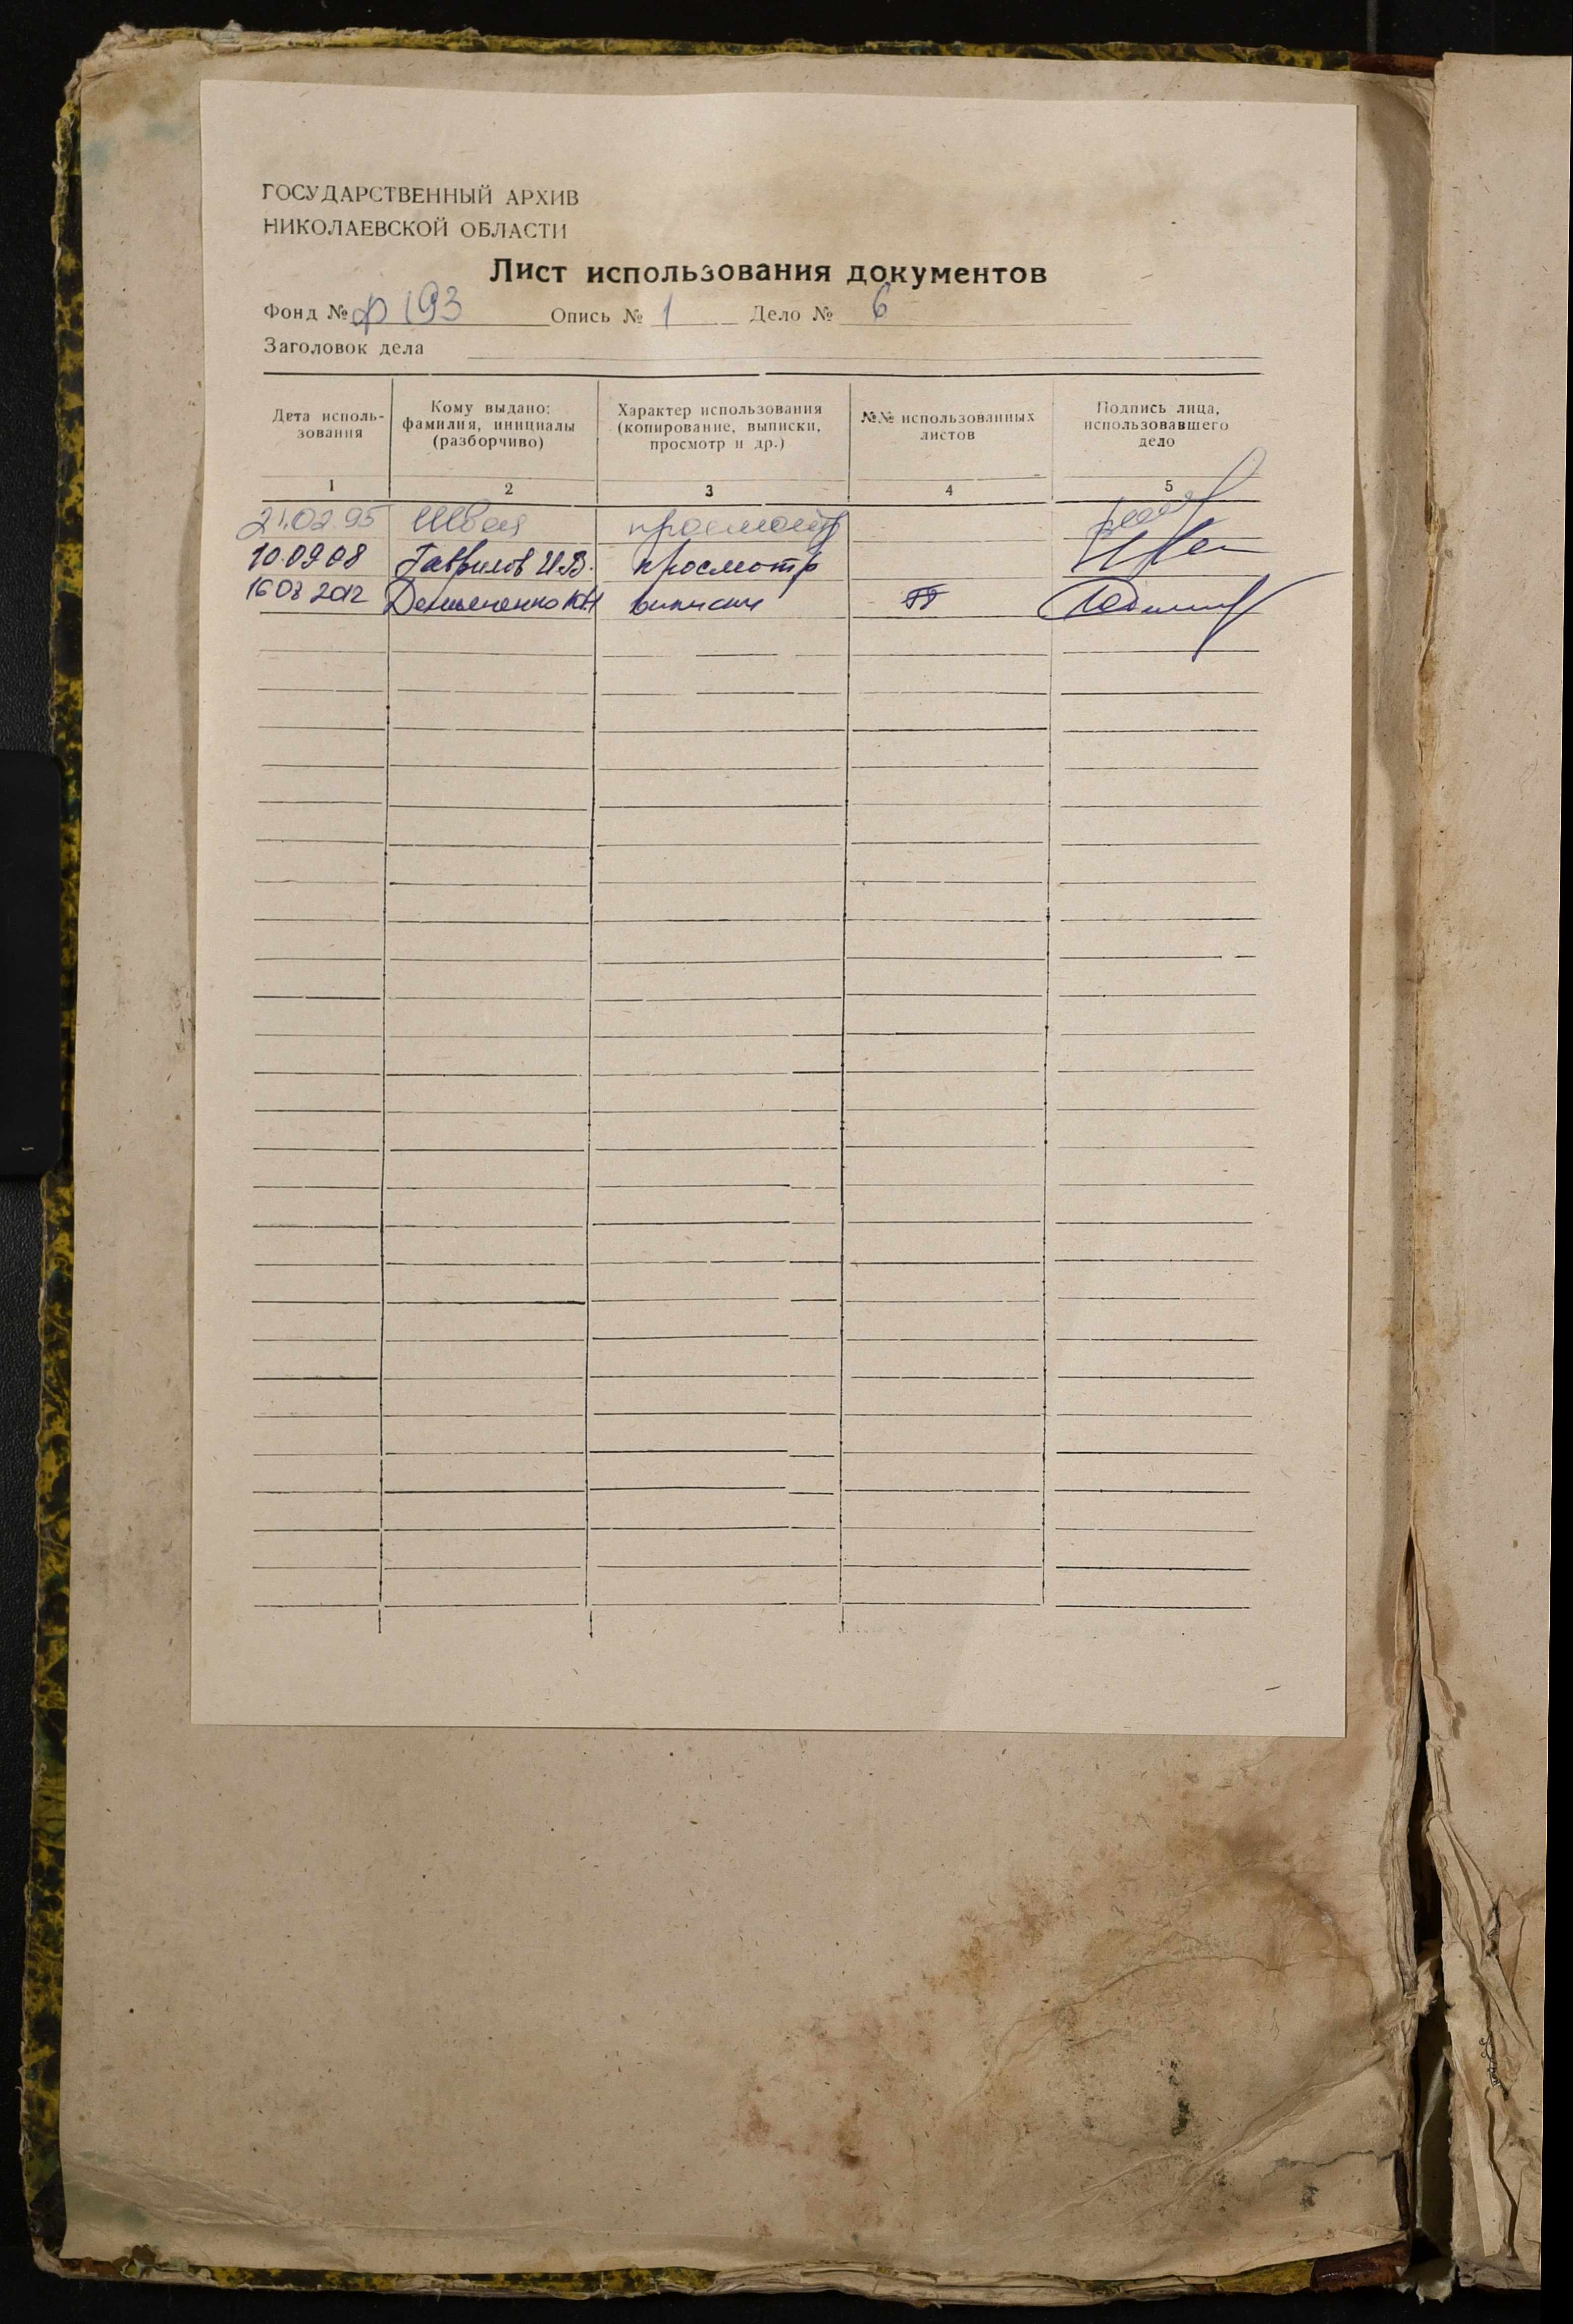 ГОСУДАРСТВЕННЫЙ АРХИВ
НИКОЛАЕВСКОЙ ОБЛАСТИ
Лист использования документов
Фонд № ф 193 Опись № 1 Дело № 6
Заголовок дела
Дата исполь- Кому выдано: Характер использования №№ использованных Подпись лица,
зования фамилия, инициалы (копирование, выписки, листов использовавшего
(разборчиво) просмотр и др.) дело
1 2 3 4 5
21.02.95 просмотр
10.09.08 Гаврилов И.В. просмотр
2012 виписки